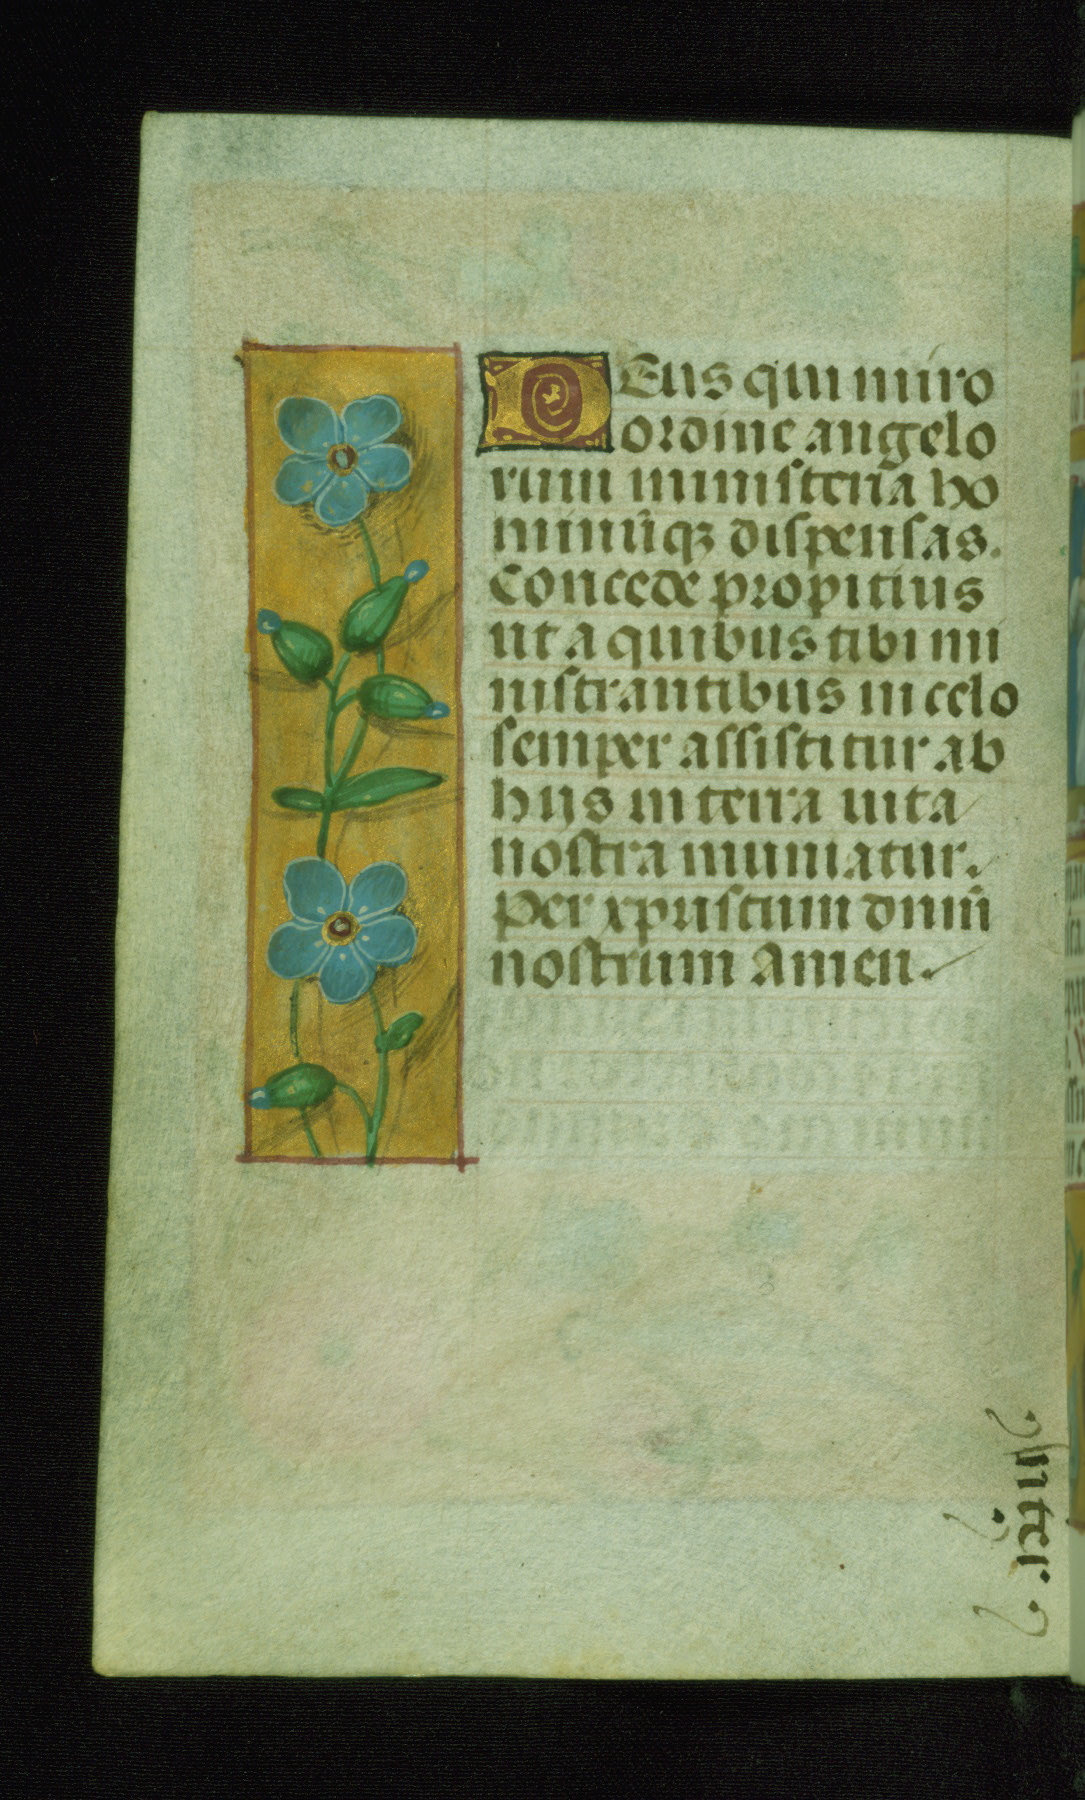 DEus qui miro
ordine angelo
rum ministeria ho
minūqꝫ dispensas.
Concede propitius
ut a quibus tibi mi
nistrantibus in celo
semper assistitur ab
hijs in terra uita
nostra muniatur.
Per xpristum dnm̄
nostrum Amen.
Inter